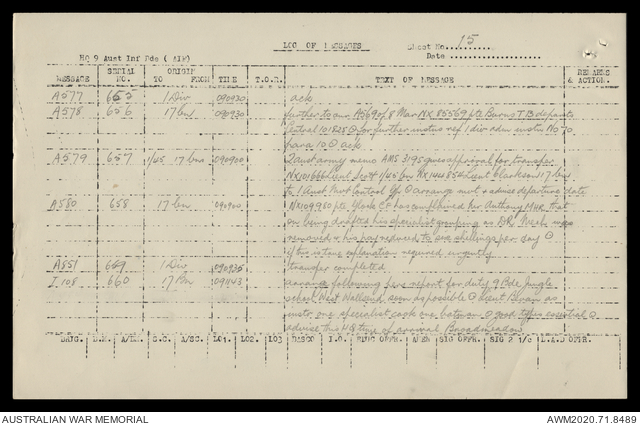 LOG OF MESSAGES Sheet No. 15
Date
HQ 9 Aust Inf Bde (AIF)
MESSAGE SERIAL NO. ORIGIN TO FROM TIME T.O.R. TEXT OF MESSAGE REMARKS & ACTION.
A577 655 1 Div 090930 ack
A578 656 17 bn 090930 further to our A569 of 8 Mar NX 85569 pte Burns T B departs
Central 101825 O for further instns ref 1 div adm instn No 70
para 10 O ack
A579 657 1/45 17 bns 090900 2 aust army memo AMS 3195 approval for transfer
Lieut Scott 1/45 bn NX144854 Lieut Clarkson 17 bn
to 1 Aust Control O arrange mvt & advise departure date
A580 658 17 bn 090900 NX109980 pte has complained
on being drafted his specialist grouping as Mech was
removed & his pay reduced to six shillings per day O
if this is true explanation required urgently
A581 659 1 Div 090935 transfer completed
I 108 660 17 Bn 091143 arrange following pers report for duty 9 Bde Jungle
school West Wallsend soon as possible O Lieut as
instr one specialist cook one batman O good types essential O
advise this HQ time of arrival Broadmeadow
BRIG. B.M. A/LN. S.C. A/SC. LO1. LO2. LO3 DASCO I.O. A&EW SIG OFFR. SIG 2 I/C L.A.D OFFR.
AUSTRALIAN WAR MEMORIAL AWM2020.71.8489